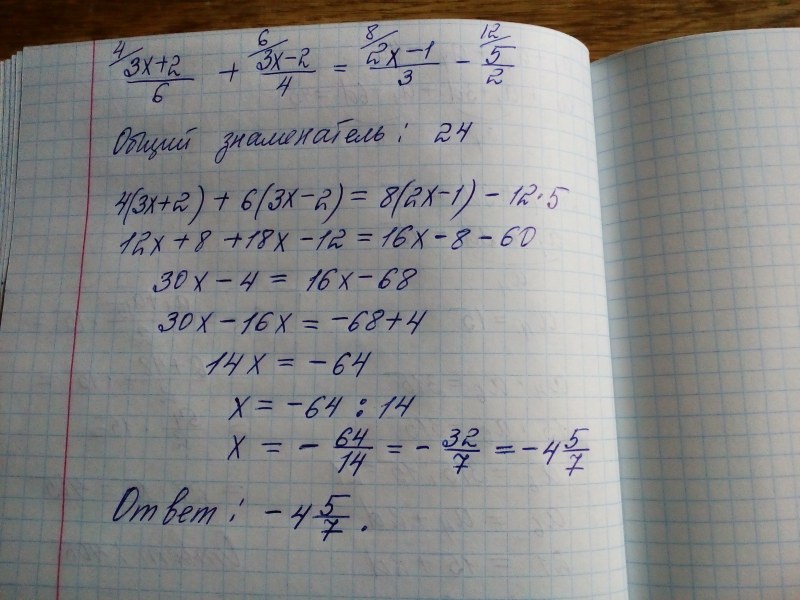 4/ (3x+2)/6 + 6/ (3x-2)/4 = 8/ (2x-1)/3 - 12/ 5/2
Общий знаменатель: 24
4(3x+2) + 6(3x-2) = 8(2x-1) - 12·5
12x+8 +18x-12 = 16x-8-60
30x-4 = 16x-68
30x-16x = -68+4
14x = -64
x = -64 : 14
x = - 64/14 = - 32/7 = -4 5/7
Ответ: -4 5/7.